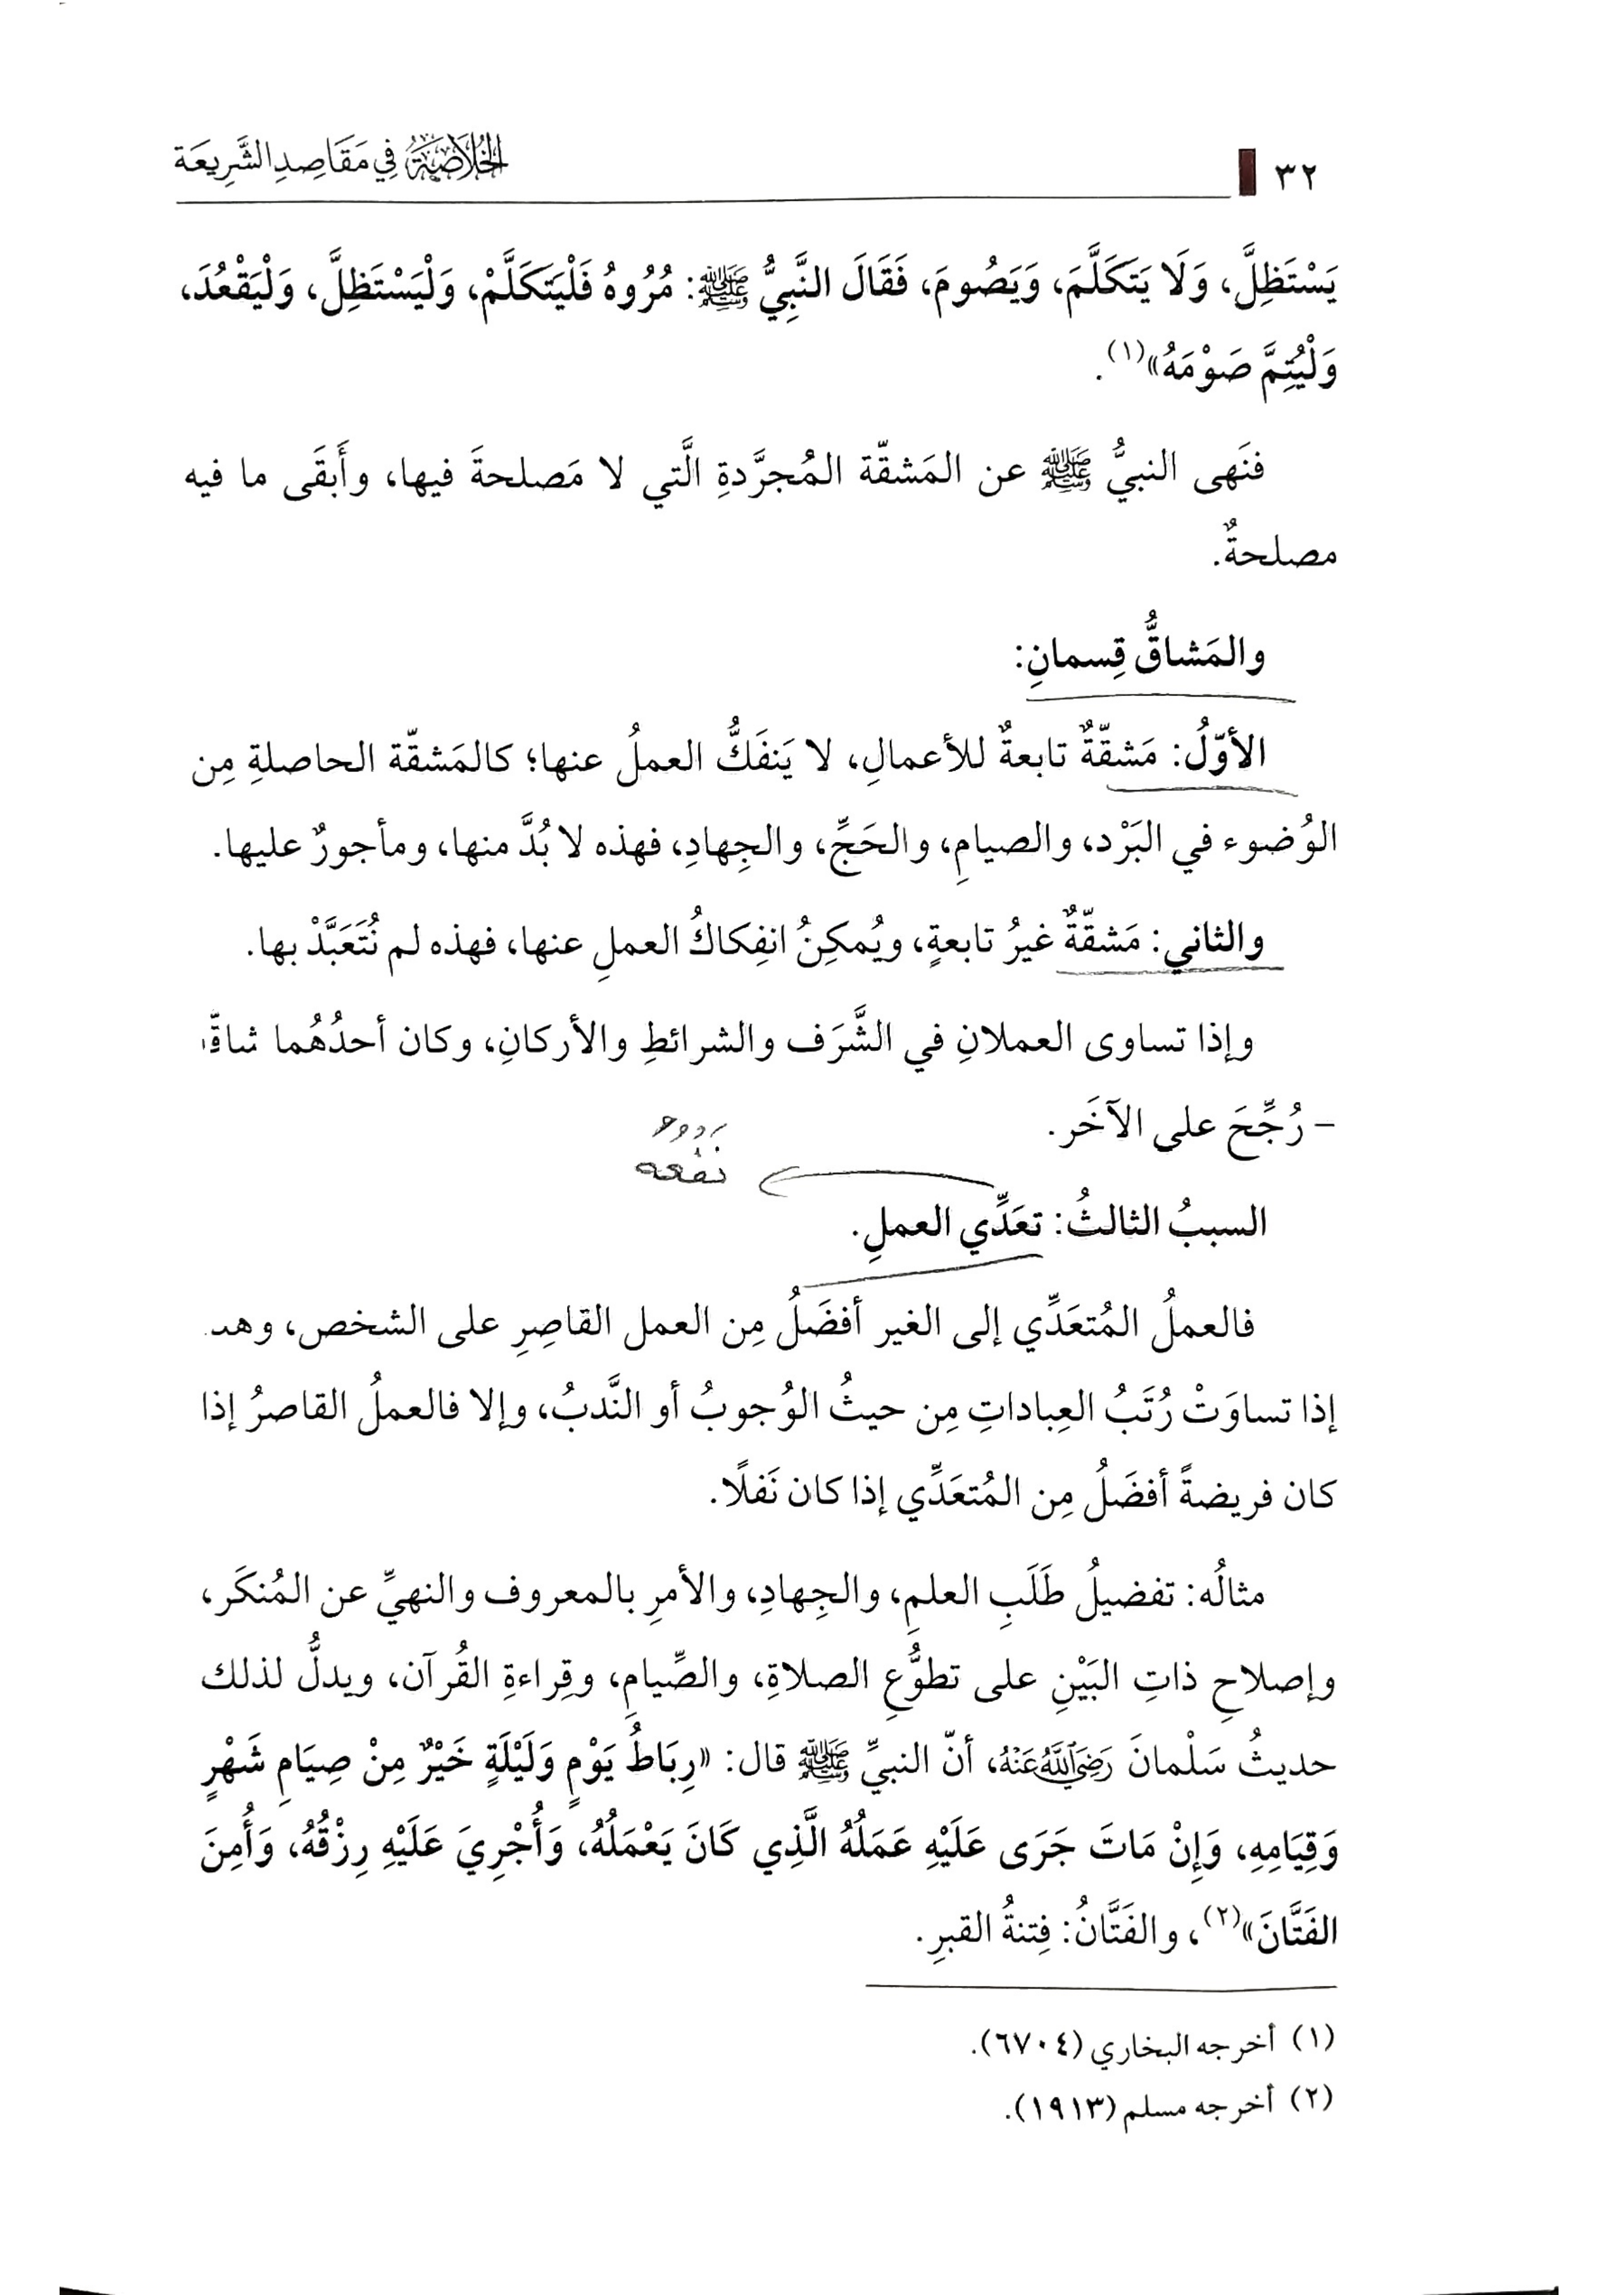 ٣٢ الخُلَاصَةُ فِي مَقَاصِدِ الشَّرِيعَة
يَسْتَظِلَّ، وَلَا يَتَكَلَّمَ، وَيَصُومَ، فَقَالَ النَّبِيُّ ﷺ: مُرُوهُ فَلْيَتَكَلَّمْ، وَلْيَسْتَظِلَّ، وَلْيَقْعُدَ،
وَلْيُتِمَّ صَوْمَهُ»(١).
فنَهى النبيُّ ﷺ عن المَشقّة المُجرَّدةِ الَّتي لا مَصلحةَ فيها، وأَبقَى ما فيه
مصلحةٌ.
والمَشاقُّ قِسمانِ:
الأوّلُ: مَشقّةٌ تابعةٌ للأعمالِ، لا يَنفَكُّ العملُ عنها؛ كالمَشقّة الحاصلةِ مِن
الوُضوء في البَرْد، والصيامِ، والحَجِّ، والجِهادِ، فهذه لا بُدَّ منها، ومأجورٌ عليها.
والثاني: مَشقّةٌ غيرُ تابعةٍ، ويُمكِنُ انفِكاكُ العملِ عنها، فهذه لم نُتَعَبَّدْ بها.
وإذا تساوى العملانِ في الشَّرَف والشرائطِ والأركانِ، وكان أحدُهُما شاقًّا
– رُجِّحَ على الآخَر.
نفعه
السببُ الثالثُ: تعَدِّي العملِ.
فالعملُ المُتعَدِّي إلى الغير أفضَلُ مِن العمل القاصِرِ على الشخص، وهذ
إذا تساوَتْ رُتَبُ العِباداتِ مِن حيثُ الوُجوبُ أو النَّدبُ، وإلا فالعملُ القاصرُ إذا
كان فريضةً أفضَلُ مِن المُتعَدِّي إذا كان نَفلًا.
مثالُه: تفضيلُ طَلَبِ العلمِ، والجِهادِ، والأمرِ بالمعروف والنهيِّ عن المُنكَر،
وإصلاحِ ذاتِ البَيْنِ على تطوُّعِ الصلاةِ، والصِّيامِ، وقِراءةِ القُرآن، ويدلُّ لذلك
حديثُ سَلْمانَ رَضِيَ اللَّهُ عَنْهُ، أنّ النبيِّ ﷺ قال: «رِبَاطُ يَوْمٍ وَلَيْلَةٍ خَيْرٌ مِنْ صِيَامِ شَهْرٍ
وَقِيَامِهِ، وَإِنْ مَاتَ جَرَى عَلَيْهِ عَمَلُهُ الَّذِي كَانَ يَعْمَلُهُ، وَأُجْرِيَ عَلَيْهِ رِزْقُهُ، وَأُمِنَ
الفَتَّانَ»(٢)، والفَتَّانُ: فِتنةُ القبرِ.
(١) أخرجه البخاري (٦٧٠٤).
(٢) أخرجه مسلم (١٩١٣).